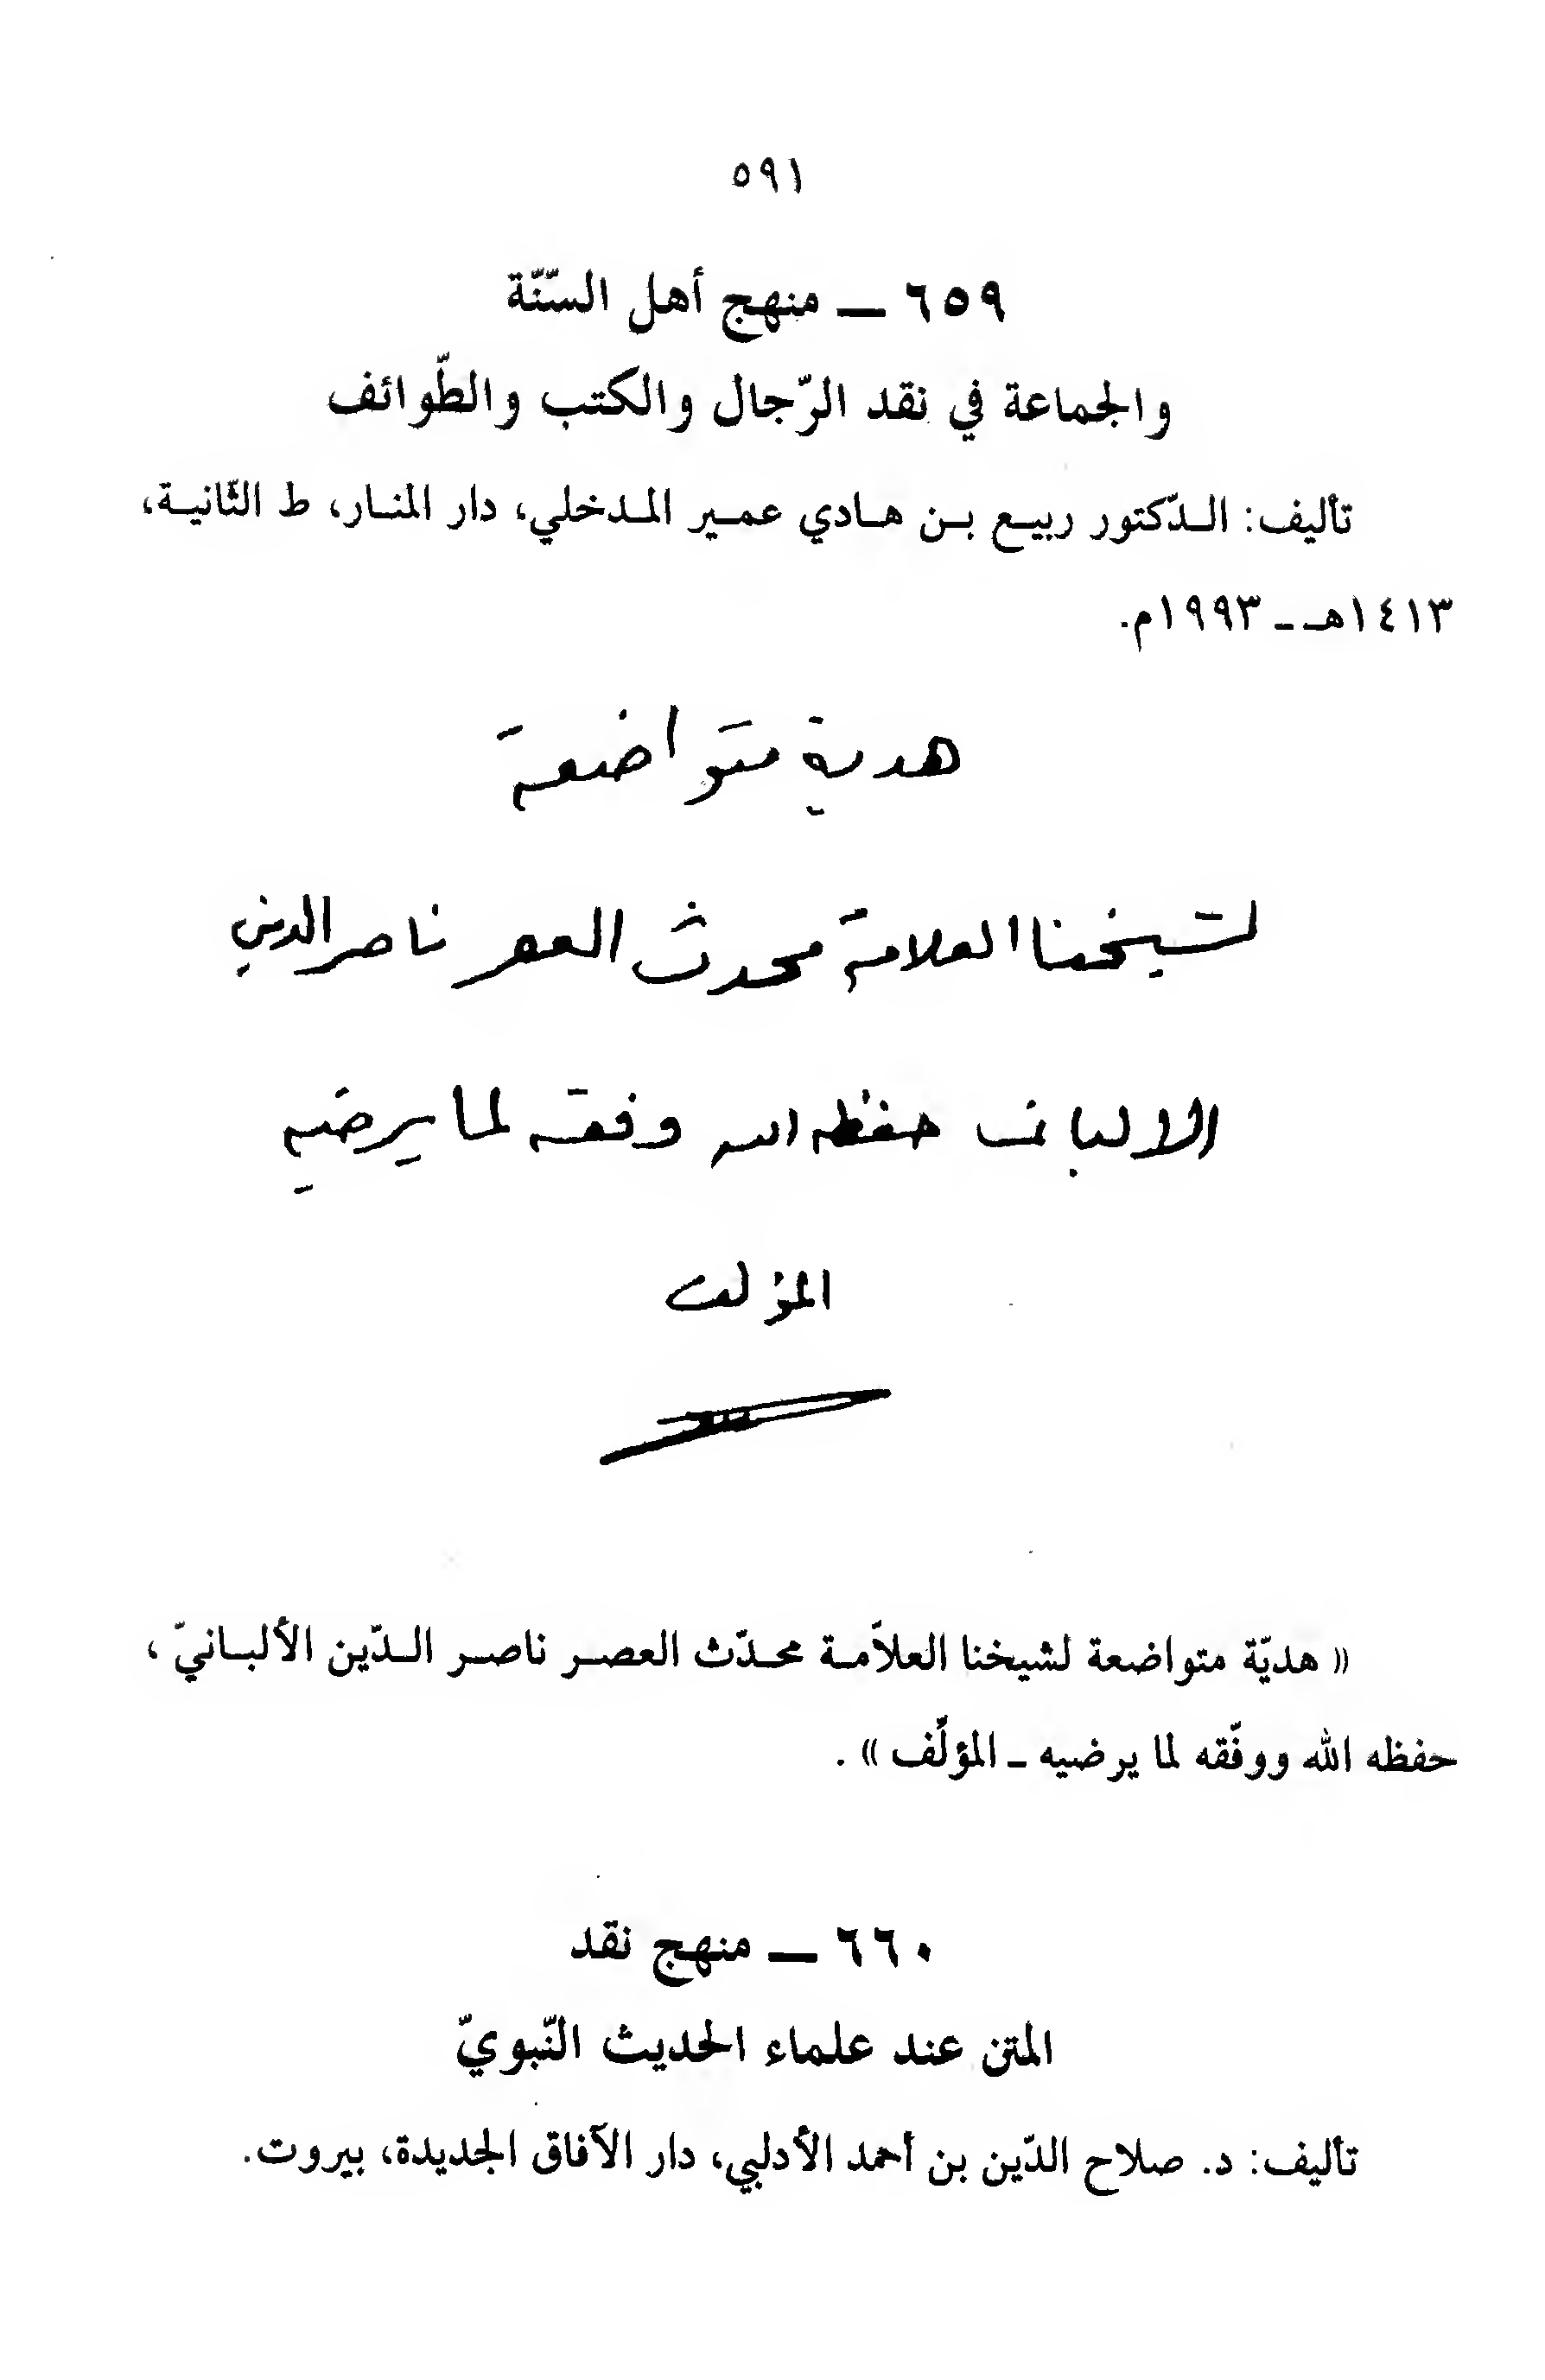 ٥٩١
٦٥٩ ـــ منهج أهل السّنّة
والجماعة في نقد الرّجال والكتب والطّوائف
تأليف: الـدّكتور ربيـع بـن هـادي عمـير المـدخلي، دار المنـار، ط الثّانيـة،
١٤١٣هـ ـ ١٩٩٣م.
هدية متواضعة
لشيخنا العلامة محدث العصر ناصر الدين
الالباني حفظه الله وفقه لما يرضيه
المؤلف
« هديّة متواضعة لشيخنا العلاّمـة محـدّث العصـر ناصـر الـدّين الألبـانيّ ،
حفظه الله ووفّقه لما يرضيه ـ المؤلِّف » .
٦٦٠ ـــ منهج نقد
المتن عند علماء الحديث النّبويّ
تأليف: د. صلاح الدّين بن أحمد الأدلبي، دار الآفاق الجديدة، بيروت.